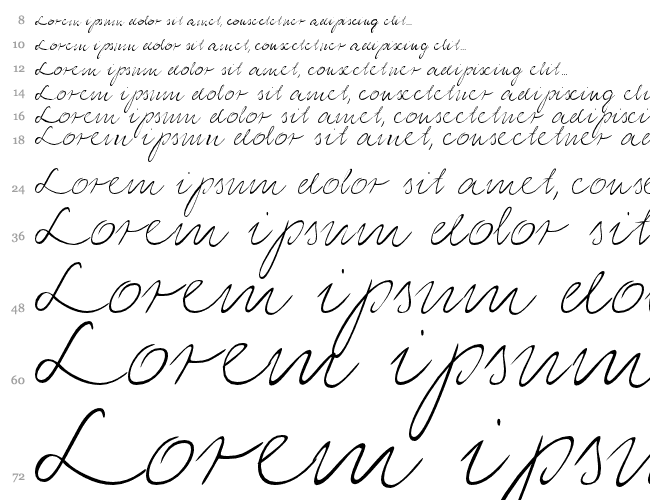 8 Lorem ipsum dolor sit amet, consectetuer adipiscing elit...
10 Lorem ipsum dolor sit amet, consectetuer adipiscing elit...
12 Lorem ipsum dolor sit amet, consectetuer adipiscing elit...
14 Lorem ipsum dolor sit amet, consectetuer adipiscing eli
16 Lorem ipsum dolor sit amet, consectetuer adipisci
18 Lorem ipsum dolor sit amet, consectetuer ad
24 Lorem ipsum dolor sit amet, conse
36 Lorem ipsum dolor sit
48 Lorem ipsum dol
60 Lorem ipsum
72 Lorem ipsu